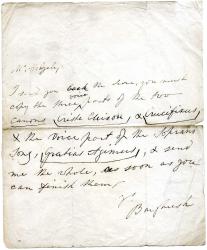 I send you back the score, you must
copy the three voice parts of the two
canons, Christe Eleison, & Crucifixus,
& the Voice part of the Soprano
Song, Gratias Agimus, & send
me the whole, as soon as you
can finish them,
Burghersh